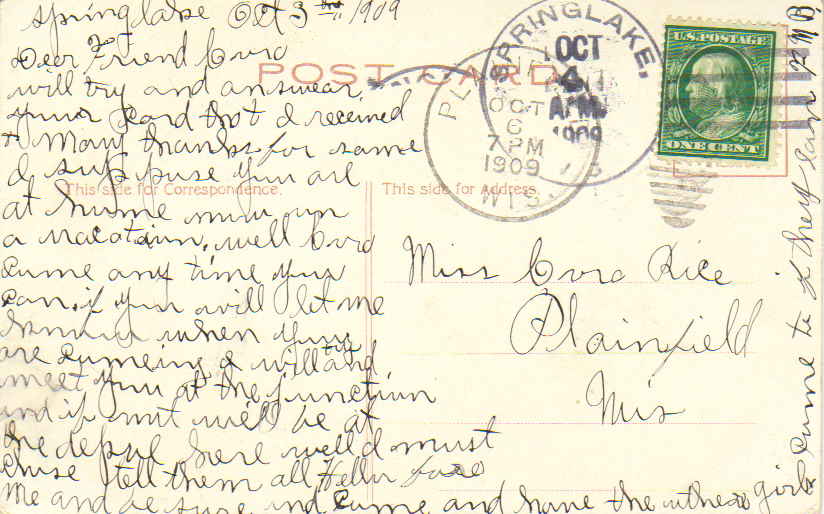 Springlake Oct 3 1909
Dear Friend Cora
will try and answear
your Card that I received
Many thanks for same
I suppose you are
at home now on
a vacatain, well Cora
Come any time you
can, if you will let me
know when you
are Comeing I will try and
meet you at the junction
and if not will be at
the depot here well I must
Close tell them all Hello for
me and be sure and Come and have the other girls
Come to if they can
POST CARD
This side for Correspondence.
This side for Address.
SPRINGLAKE,
OCT
4
1909
PL
OCT
6
7 PM
1909
WIS.
U.S. POSTAGE
ONE CENT
Miss Cora Rice
Plainfield
Wis